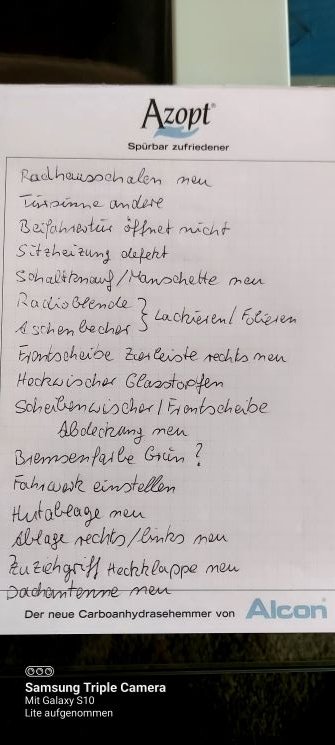 Azopt®
Spürbar zufriedener
Radhausschalen neu
Türpinne andere
Beifahrertür öffnet nicht
Sitzheizung defekt
Schaltknauf/Manschette neu
Radioblende
Aschenbecher } Lackieren/Folieren
Frontscheibe Zierleiste rechts neu
Heckwischer Glasstopfen
Scheibenwischer/Frontscheibe
Abdeckung neu
Bremsenfarbe Grün?
Fahrwerk einstellen
Hutablage neu
Ablage rechts/links neu
Zuziehgriff Heckklappe neu
Dachantenne neu
Der neue Carboanhydrasehemmer von Alcon
Samsung Triple Camera
Mit Galaxy S10
Lite aufgenommen